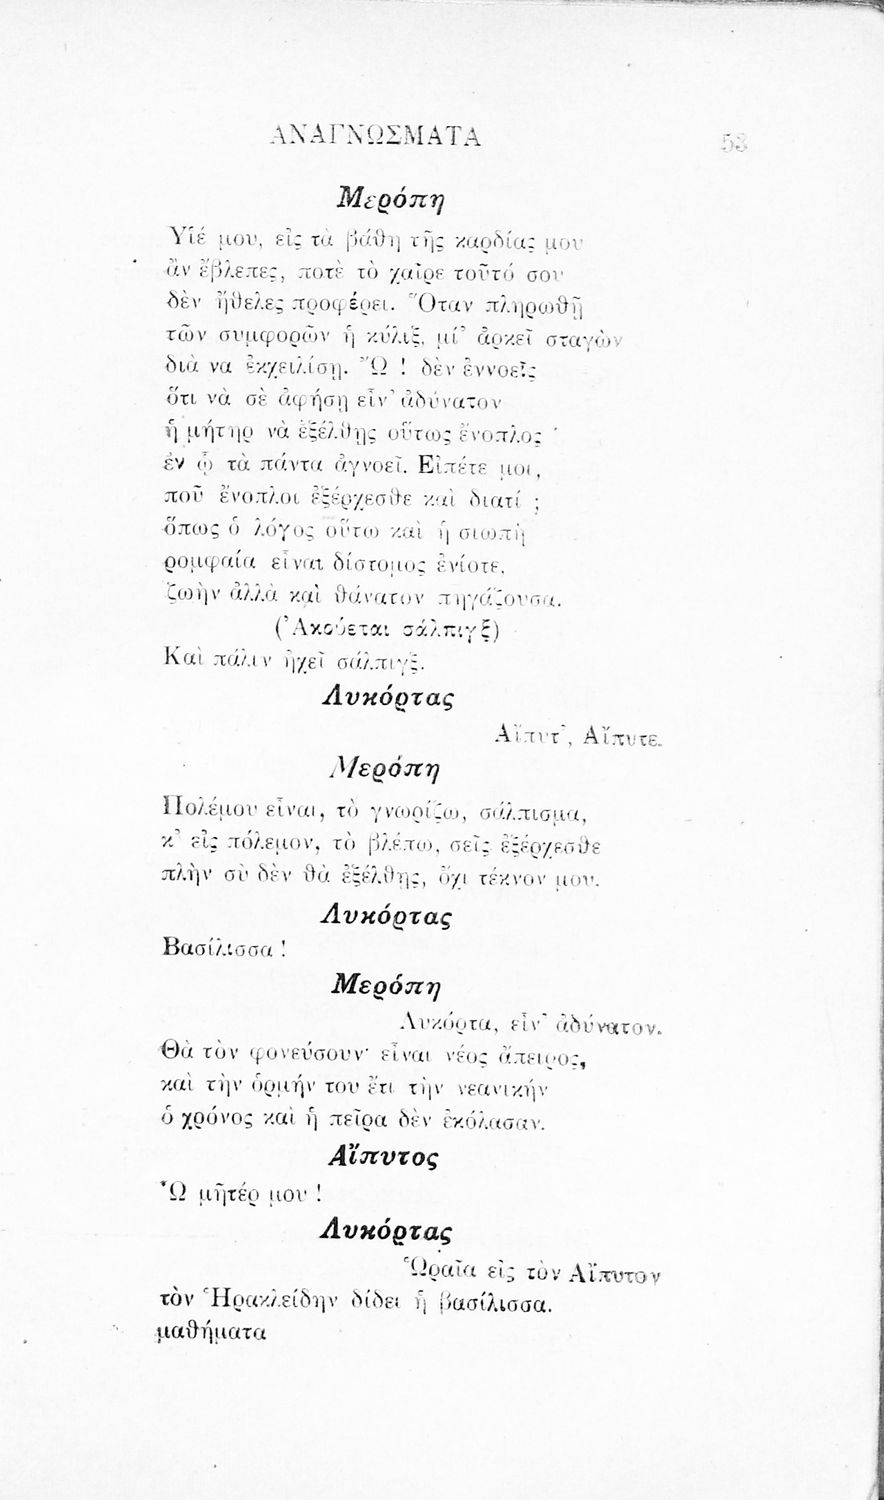 ΑΝΑΓΝΩΣΜΑΤΑ 53
Μερόπη
Υἱέ μου, εἰς τὰ βάθη τῆς καρδίας μου
ἂν ἔβλεπες, ποτὲ τὸ χαῖρε τοῦτό σου
δὲν ἤθελες προφέρει. Ὅταν πληρωθῇ
τῶν συμφορῶν ἡ κύλιξ, μί' ἀρκεῖ σταγὼν
διὰ να ἐκχειλίσῃ. Ὢ ! δὲν ἐννοεῖς
ὅτι νὰ σὲ ἀφήσῃ εἶν' ἀδύνατον
ἡ μήτηρ νὰ ἐξέλθῃς οὕτως ἔνοπλος ·
ἐν ᾧ τὰ πάντα ἀγνοεῖ. Εἰπέτε μοι,
ποῦ ἔνοπλοι ἐξέρχεσθε καὶ διατί ;
ὅπως ὁ λόγος οὕτω καὶ ἡ σιωπὴ
ρομφαία εἶναι δίστομος ἐνίοτε,
ζωὴν ἀλλὰ καὶ θάνατον πηγάζουσα.
(Ἀκούεται σάλπιγξ)
Καὶ πάλιν ἠχεῖ σάλπιγξ.
Λυκόρτας
Αἴπυτ', Αἴπυτε.
Μερόπη
Πολέμου εἶναι, τὸ γνωρίζω, σάλπισμα,
κ' εἰς πόλεμον, τὸ βλέπω, σεῖς ἐξέρχεσθε
πλὴν σὺ δὲν θὰ ἐξέλθῃς, ὄχι τέκνον μου.
Λυκόρτας
Βασίλισσα !
Μερόπη
Λυκόρτα, εἶν' ἀδύνατον.
Θὰ τὸν φονεύσουν· εἶναι νέος ἄπειρος,
καὶ τὴν ὁρμήν του ἔτι τὴν νεανικήν
ὁ χρόνος καὶ ἡ πεῖρα δὲν ἐκόλασαν.
Αἴπυτος
Ὦ μῆτέρ μου !
Λυκόρτας
Ὡραῖα εἰς τὸν Αἴπυτον
τὸν Ἡρακλείδην δίδει ἡ βασίλισσα.
μαθήματα